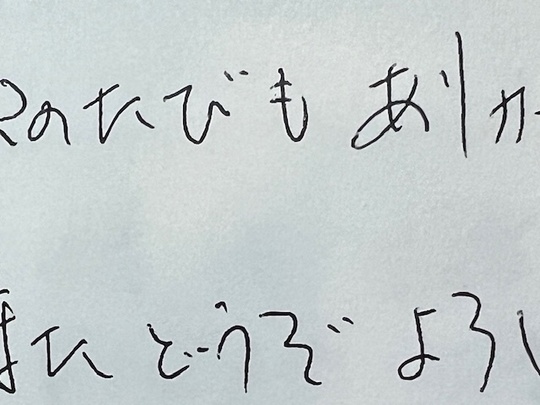 このたびも ありが
またどうぞ よろし